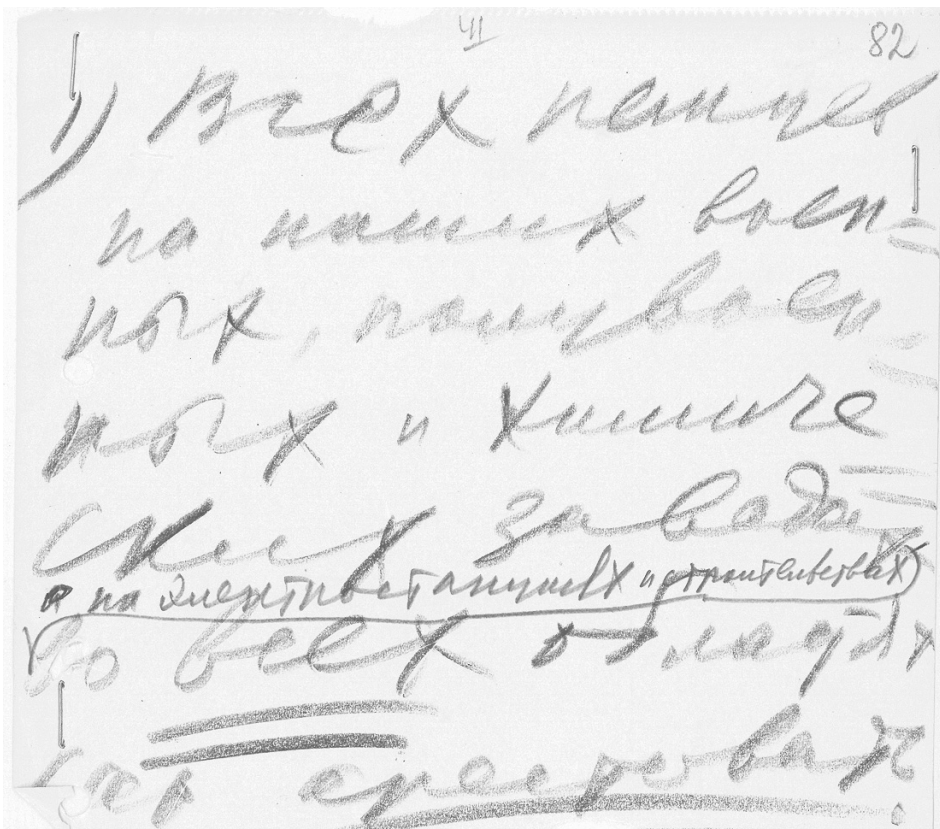 VI
82
1) Всех немцев
на наших воен-
ных, полувоен-
ных и химиче
ских заводах
на электростанциях и строительствах)
во всех областях
арестовать